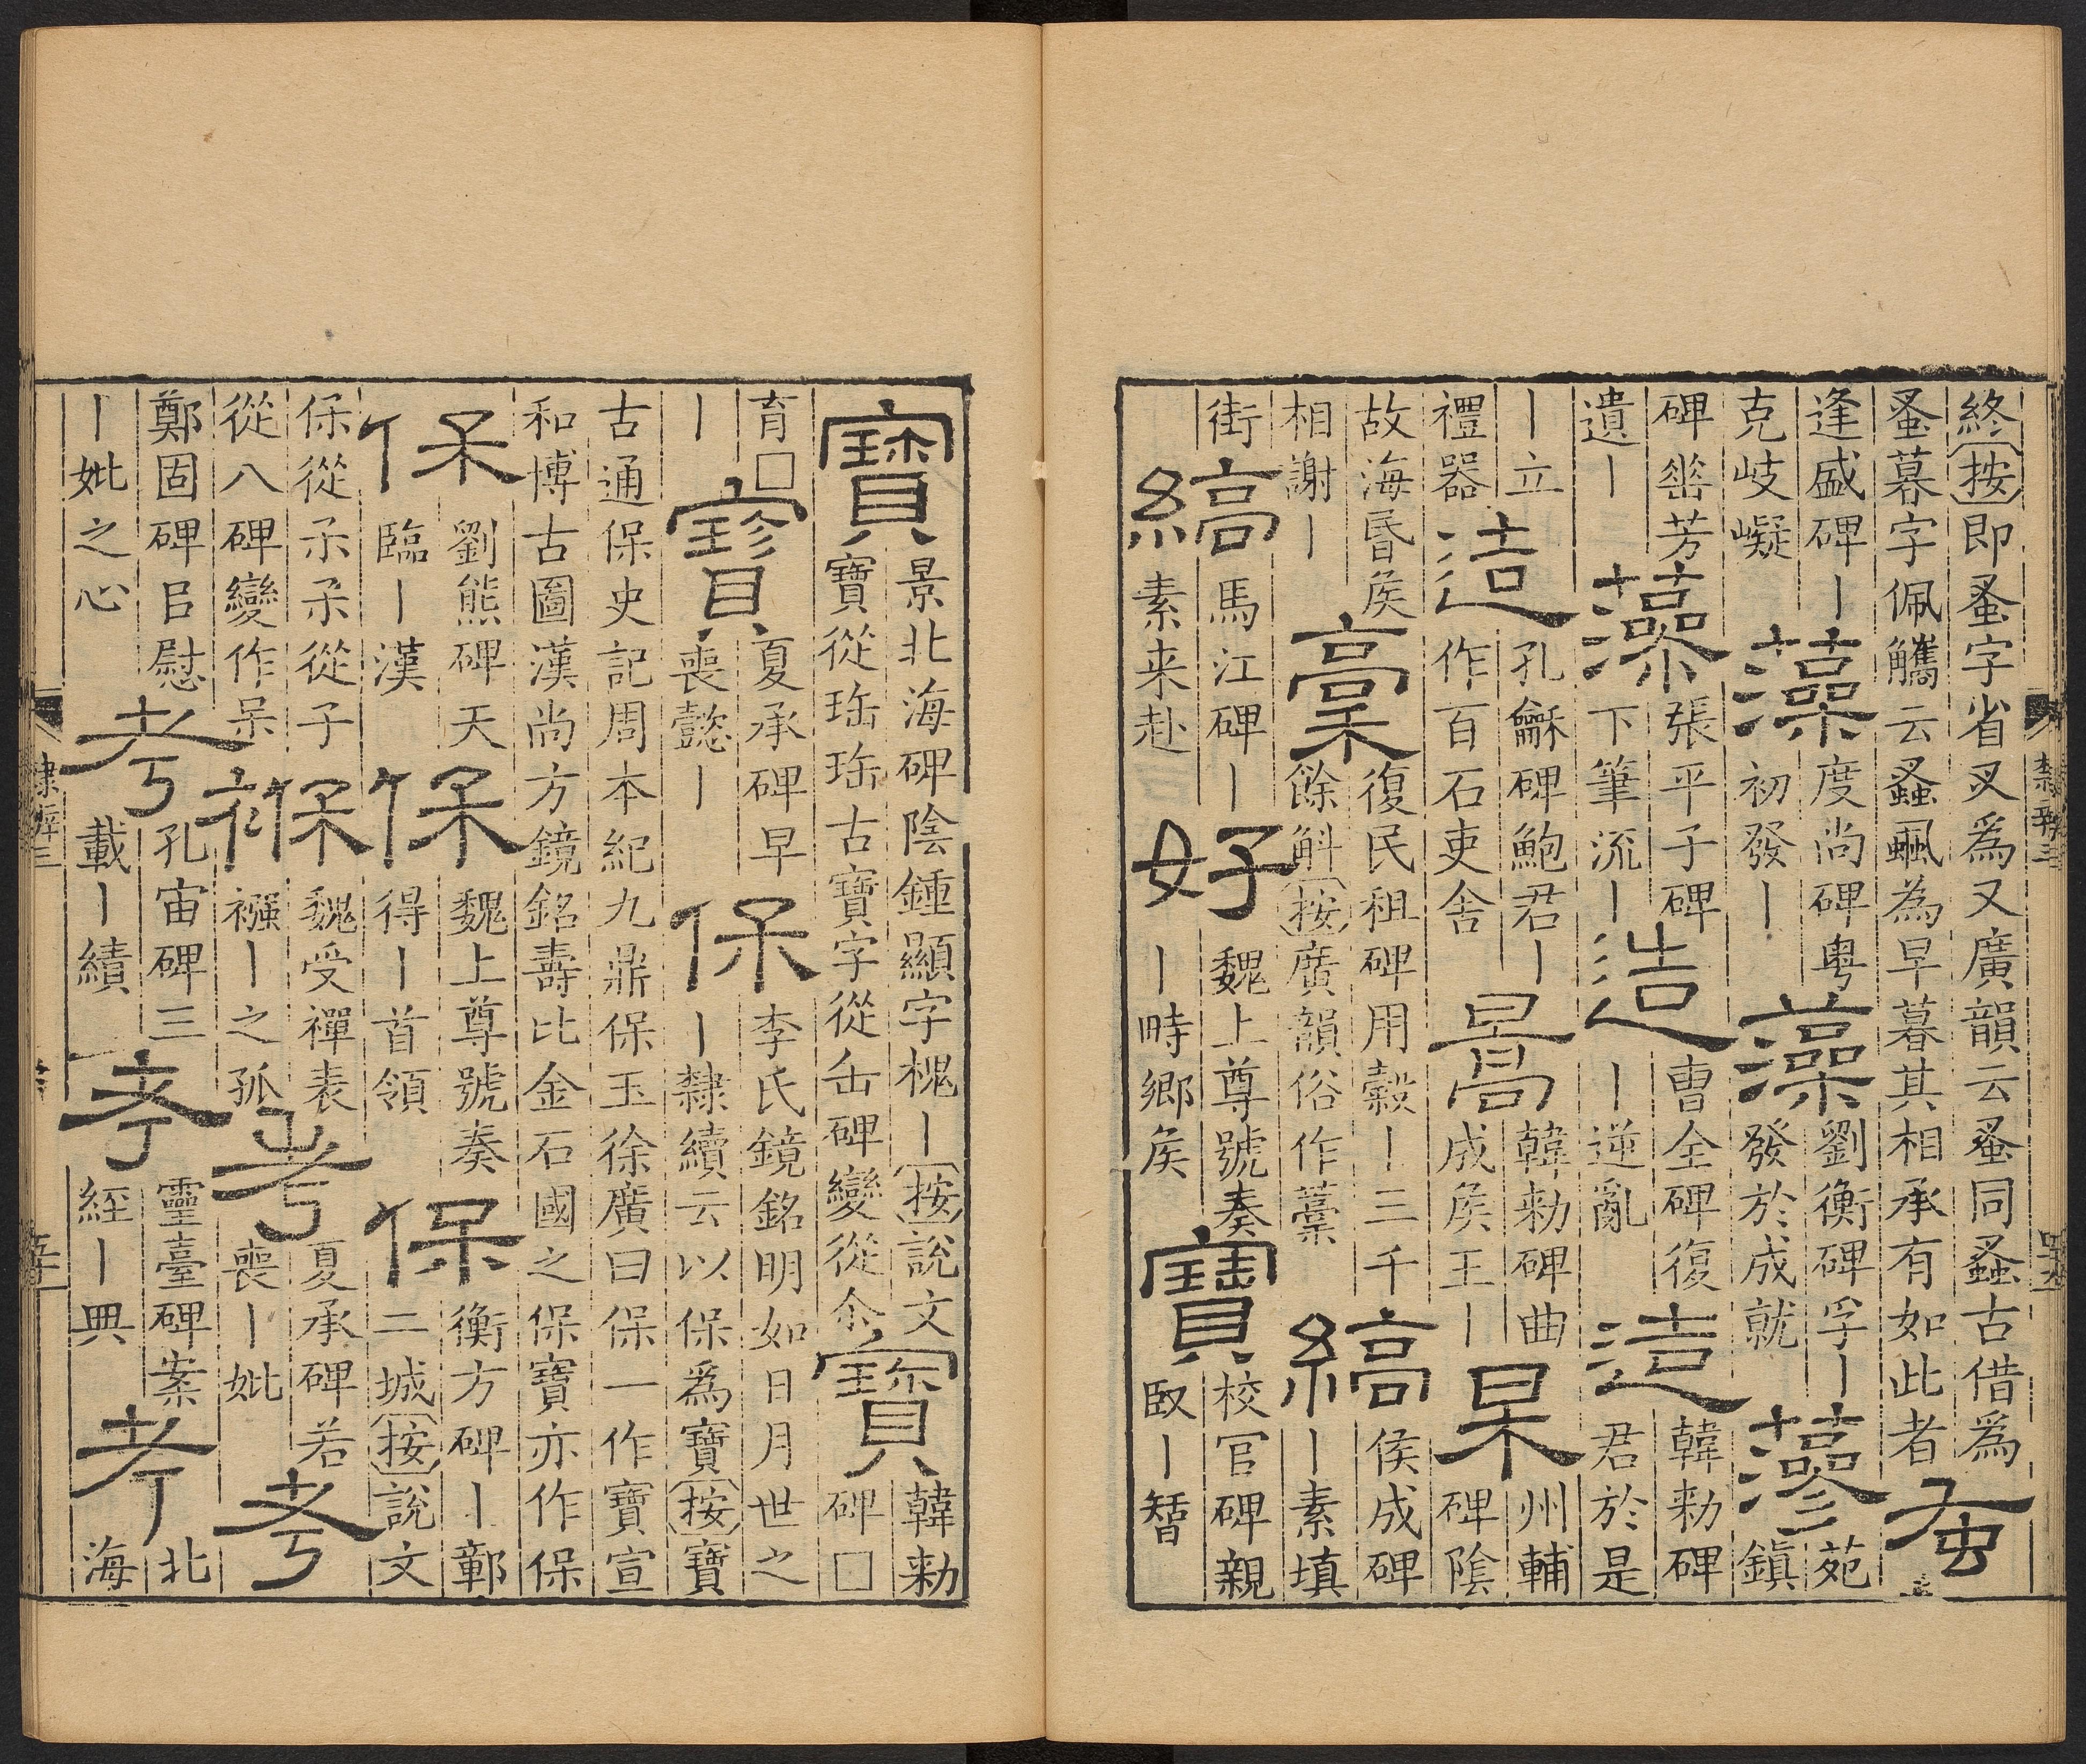 終按即蚤字省叉爲又廣韻云蚤同蝨古借爲
蚤暮字佩觿云蝨颿為早暮其相承有如此者蚤
逢盛碑丨克岐嶷藻度尚碑粵初發丨藻劉衡碑孚丨發於成就藻苑鎮
碑崋芳遺丨藻張平子碑下筆流丨造曹全碑復丨逆亂造韓勑碑君於是
丨立禮器造孔龢碑鮑君丨作百石吏舍暠韓勑碑曲成矦王丨杲州輔碑陰
故海昬矦相謝丨稾復民租碑用穀丨三千餘斛按廣韻俗作藁縞侯成碑丨素填
街縞馬江碑丨素来赴好魏上尊號奏丨畤鄉矦寶校官碑親臤丨智
隸辨三
寶景北海碑陰鍾顯字槐丨按說文寶從珤珤古寶字從缶碑變從尒寶韓勑碑□
育□丨寶夏承碑早喪懿丨保李氏鏡銘明如日月世之丨隸續云以保爲寶按寶
古通保史記周本紀九鼎保玉徐廣曰保一作寶宣
和博古圖漢尚方鏡銘壽比金石國之保寶亦作保
保劉熊碑天臨丨漢保魏上尊號奏得丨首領保衡方碑丨鄣二城按說文
保從𤔽𤔽從子從八碑變作呆褓魏受禪表襁丨之孤考夏承碑若喪丨妣考
鄭固碑㠯慰丨妣之心考孔宙碑三載丨績考靈臺碑案經丨典考北海
隸辨三